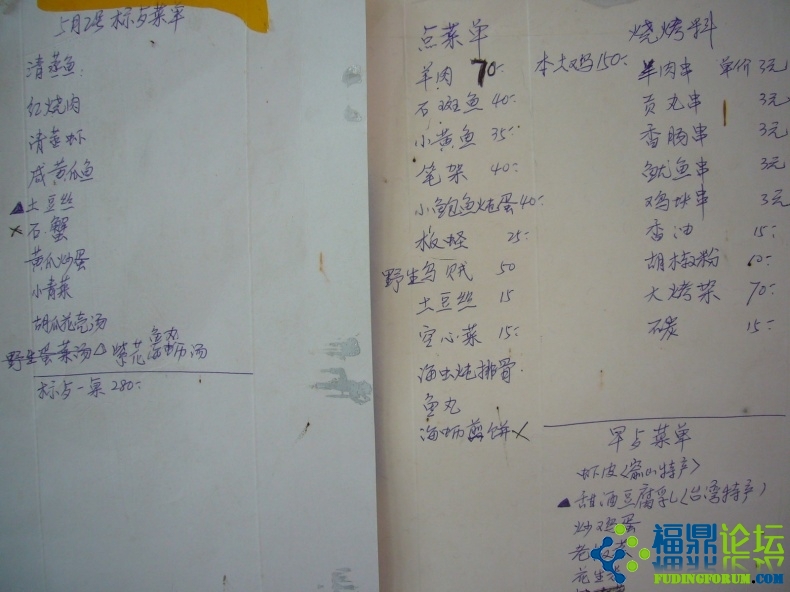 5月2号标与菜单
清蒸鱼
红烧肉
清蒸虾
咸黄瓜鱼
▲土豆丝
×石蟹
黄瓜炒蛋
小青菜
胡瓜花壳汤
野生蛋菜汤△ 紫花鱼丸海蛎汤
标与一桌280:
点菜单
羊肉 70: 本土鸡150:
石斑鱼 40:
小黄鱼 35:
笔架 40:
小鲍鱼炖蛋40:
25:
野生乌贼 50
土豆丝 15
空心菜 15:
海虫炖排骨
鱼丸
海蛎煎饼×
烧烤料
羊肉串 单价3元
贡丸串 3元
香肠串 3元
鱿鱼串 3元
鸡块串 3元
香油 15:
胡椒粉 10:
大烤架 70:
石炭 15:
早与菜单
虾皮(嵛山特产)
▲甜酒豆腐乳(台湾特产)
炒鸡蛋
花生
福鼎论坛
FUDINGFORUM.COM